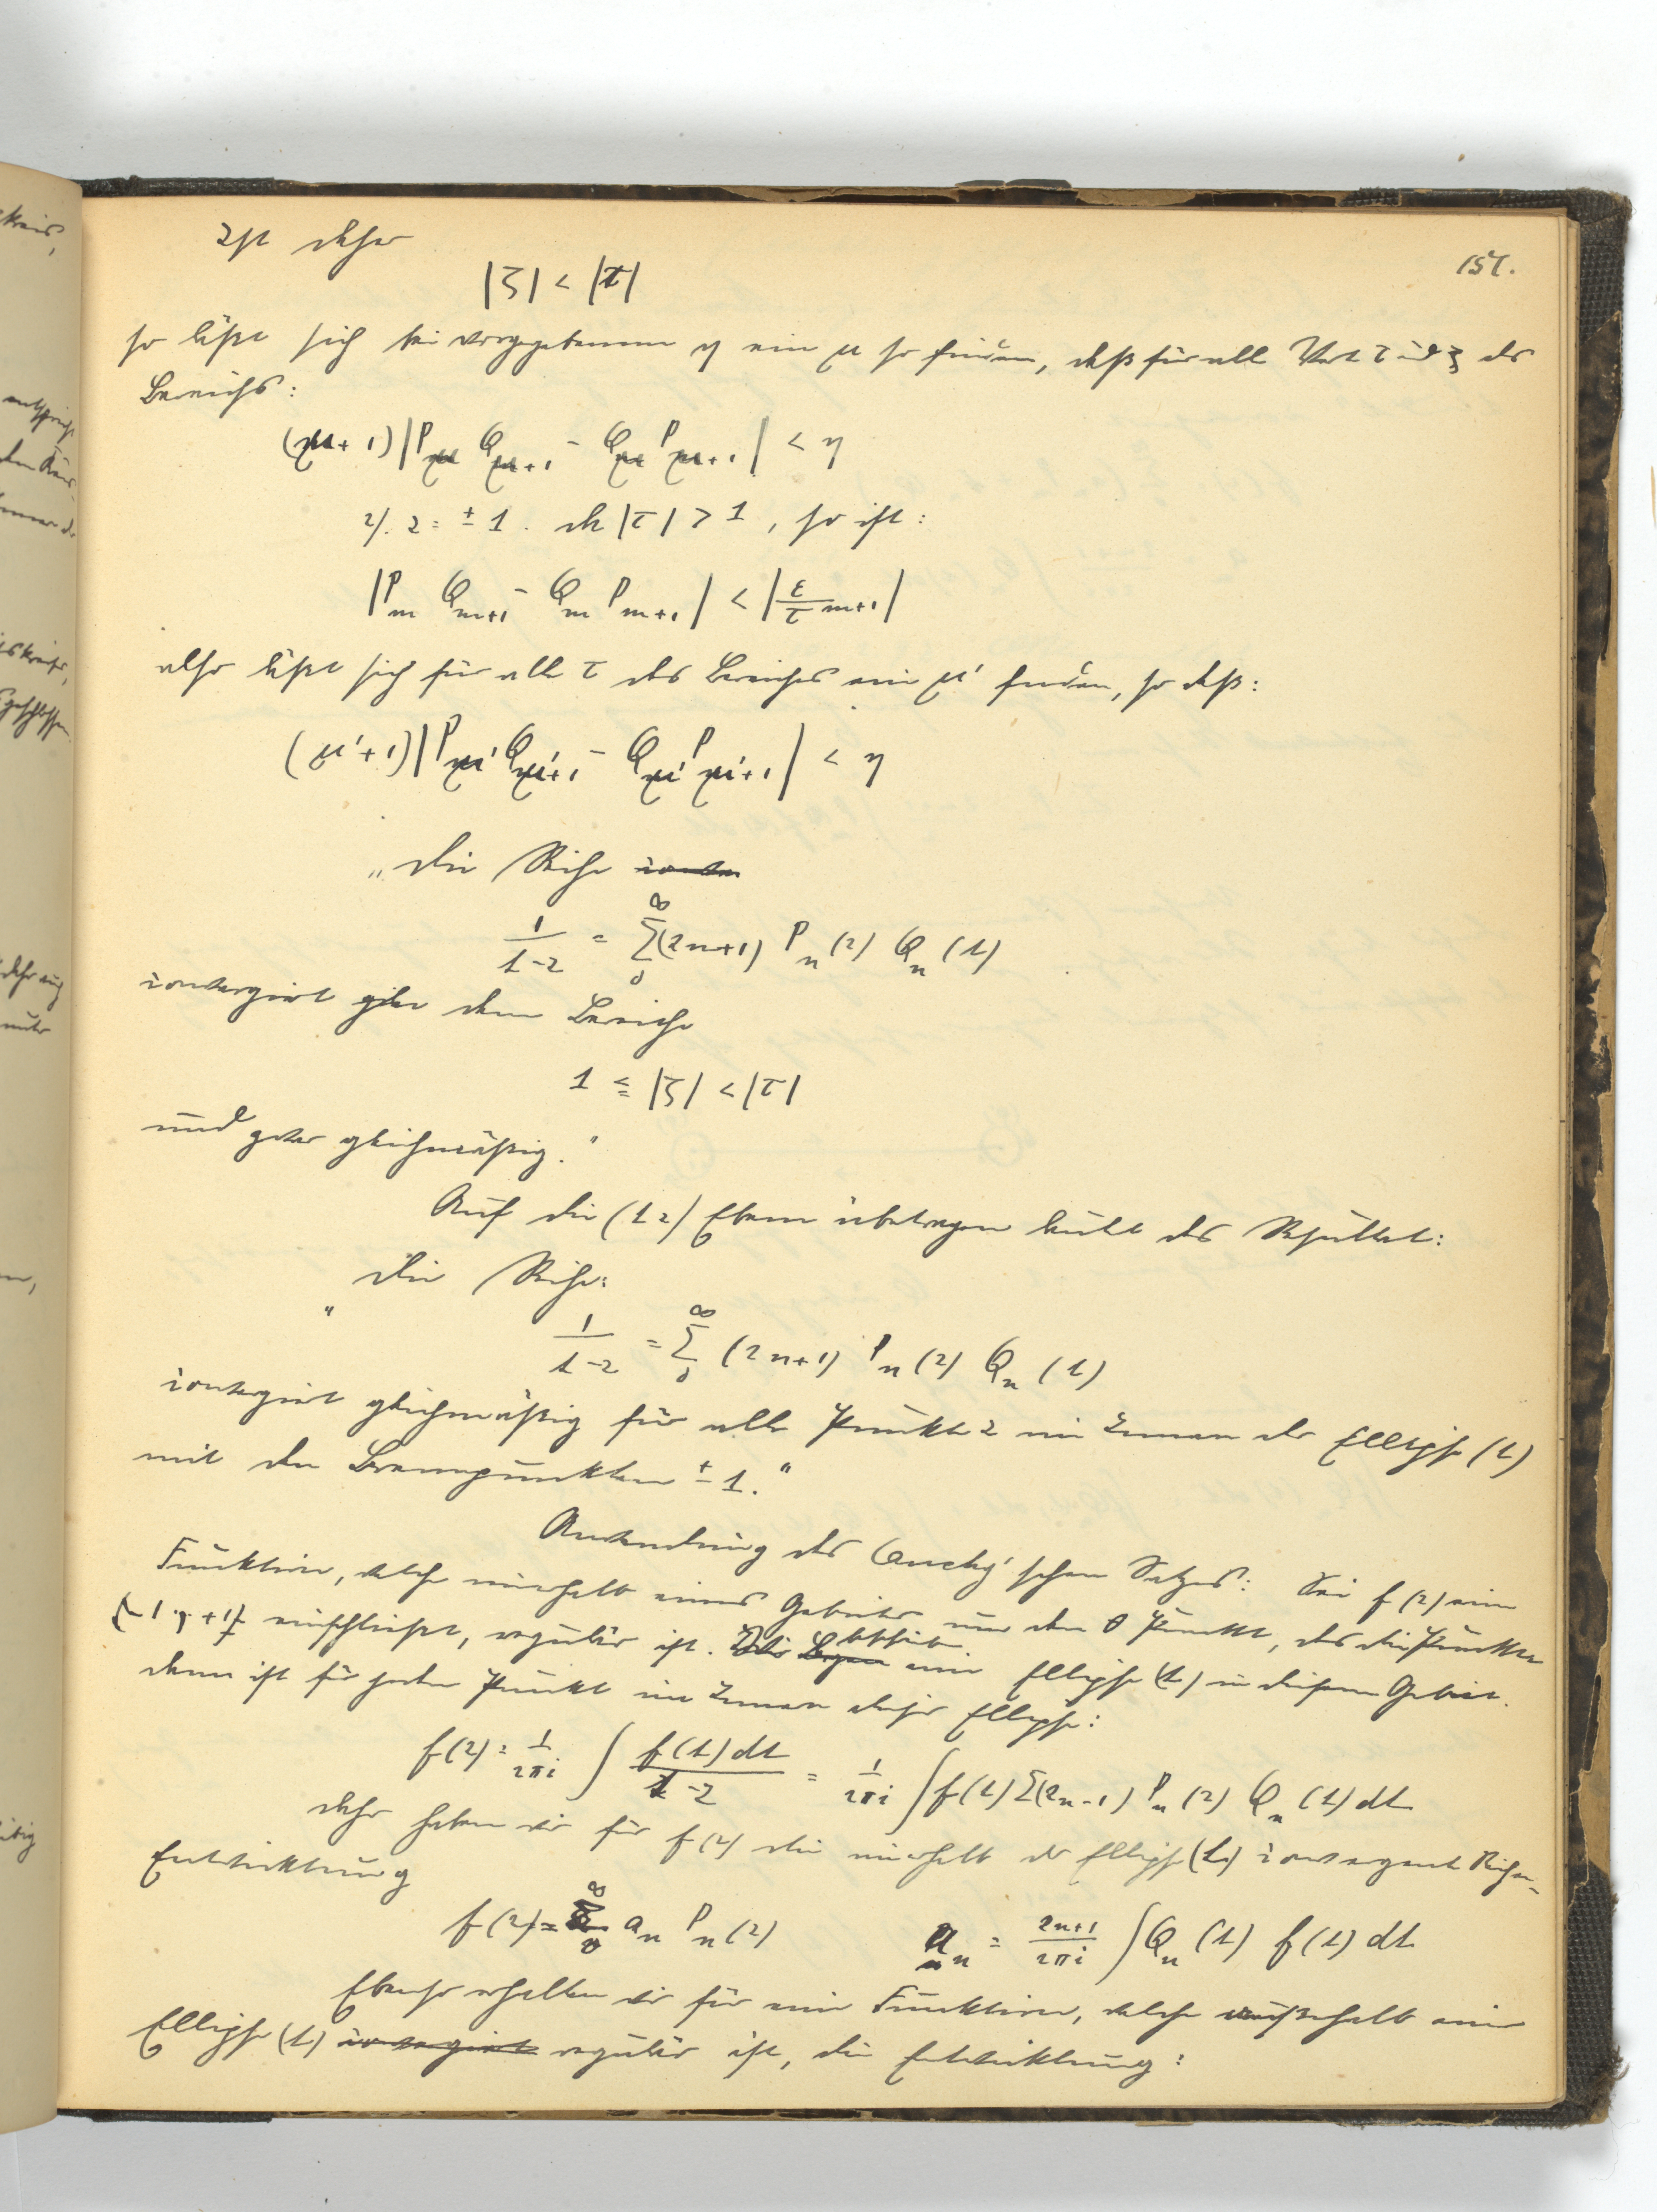 157.
Ist daher
|ζ| < |τ|
so läßt sich bei vorgegebenem η ein μ so finden, daß für alle Werte τ und ζ des
Bereichs:
(μ+1)|P_μ Q_{μ+1} - Q_μ P_{μ+1}| < η
2). z = ± 1. da |τ| > 1, so ist:
|P_m Q_{m+1} - Q_m P_{m+1}| < |ε/τ^{m+1}|
also läßt sich für alle τ des Bereiches ein μ' finden, so daß:
(μ'+1)|P_{μ'} Q_{μ'+1} - Q_{μ'} P_{μ'+1}| < η
„Die Reihe
1/(t-z) = Σ_0^∞ (2n+1) P_n(z) Q_n(t)
convergirt in dem Bereiche
1 ≦ |ζ| < |τ|
und zwar gleichmäßig."
Auf die (t z) Ebene übertragen lautet das Resultat:
„Die Reihe:
1/(t-z) = Σ_0^∞ (2n+1) P_n(z) Q_n(t)
convergirt gleichmäßig für alle Punkte z im Innern der Ellipse (t)
mit den Brennpunkten ± 1."
Anwendung des Cauchy'schen Satzes: Sei f(z) eine
Funktion, welche innerhalb eines Gebietes um den 0 Punkt, das die Punkte
(-1, +1) einschließt, regulär ist. eine Ellipse (t) in diesem Gebiet.
dann ist für jeden Punkt im Innern dieser Ellipse:
f(z) = 1/(2πi) ∫ f(t)dt/(t-z) = 1/(2πi) ∫ f(t) Σ(2n-1) P_n(z) Q_n(t) dt
Daher haben wir für f(z) die innerhalb der Ellipse (t) convergente Reihen-
Entwicklung
f(z) = Σ_0^∞ a_n P_n(z) a_n = (2n+1)/(2πi) ∫ Q_n(t) f(t) dt
Ebenso erhalten wir für eine Funktion, welche außerhalb einer
Ellipse (t) convergirt regulär ist, die Entwicklung: